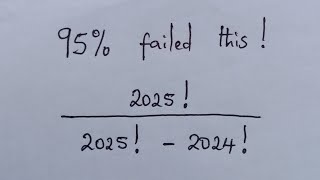 95% failed this!
2025!
2025! - 2024!